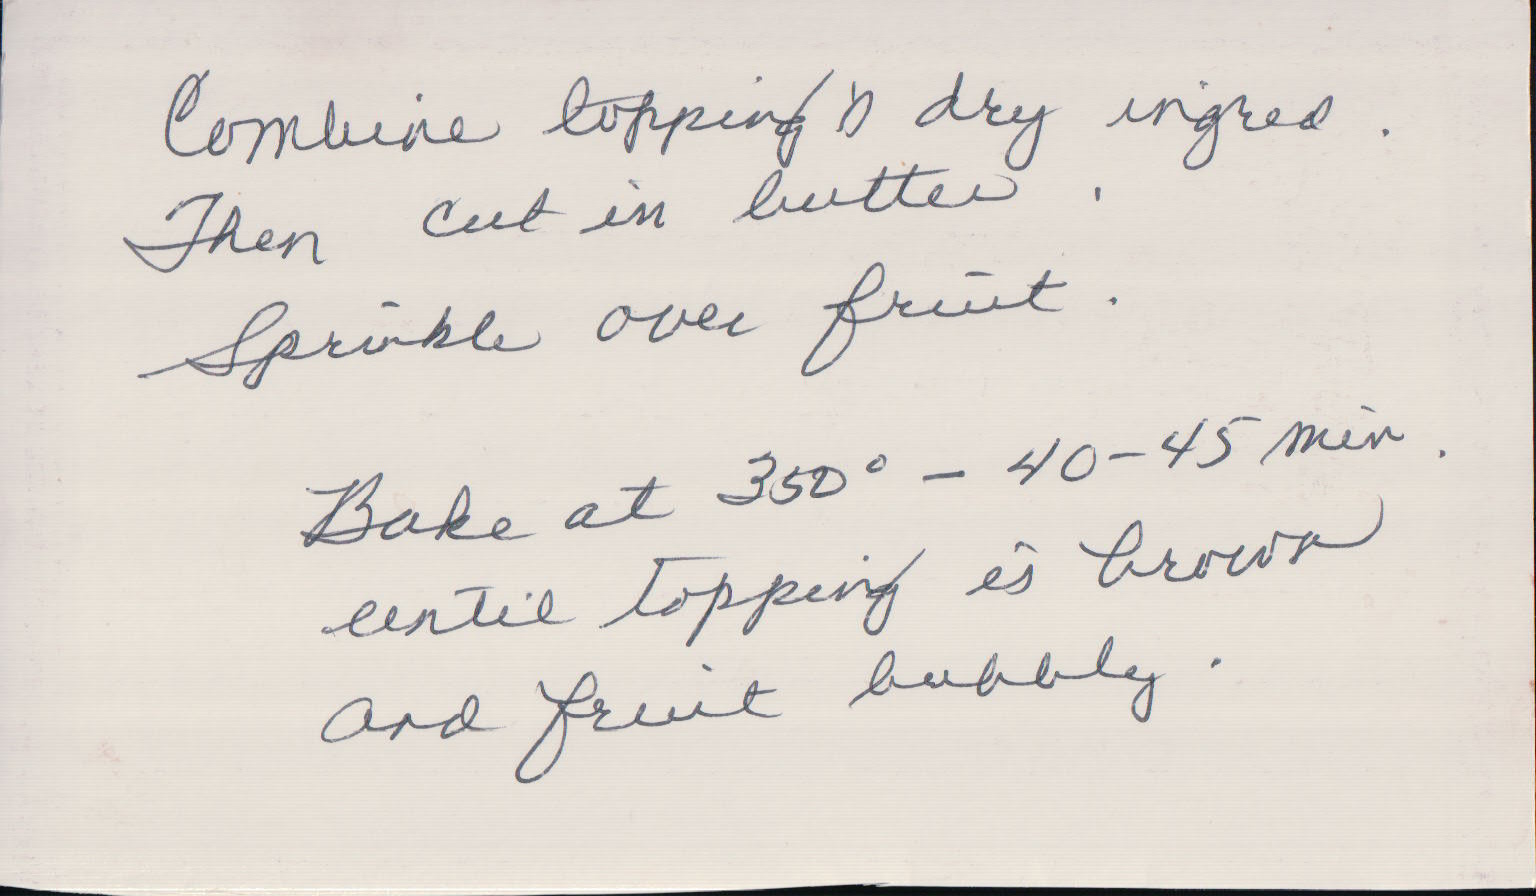 Combine topping's dry ingred.
Then cut in butter.
Sprinkle over fruit.
Bake at 350° - 40-45 min.
until topping is brown
and fruit bubbly.